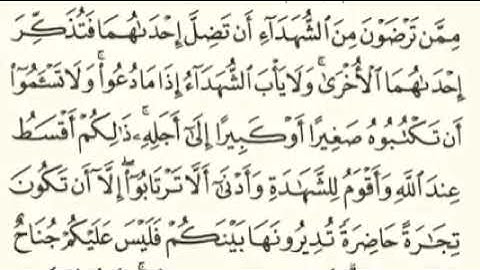 مِمَّن تَرْضَوْنَ مِنَ ٱلشُّهَدَآءِ أَن تَضِلَّ إِحْدَىٰهُمَا فَتُذَكِّرَ
إِحْدَىٰهُمَا ٱلْأُخْرَىٰ ۚ وَلَا يَأْبَ ٱلشُّهَدَآءُ إِذَا مَا دُعُوا۟ ۚ وَلَا تَسْـَٔمُوٓا۟
أَن تَكْتُبُوهُ صَغِيرًا أَوْ كَبِيرًا إِلَىٰٓ أَجَلِهِۦ ۚ ذَٰلِكُمْ أَقْسَطُ
عِندَ ٱللَّهِ وَأَقْوَمُ لِلشَّهَٰدَةِ وَأَدْنَىٰٓ أَلَّا تَرْتَابُوٓا۟ ۖ إِلَّآ أَن تَكُونَ
تِجَٰرَةً حَاضِرَةً تُدِيرُونَهَا بَيْنَكُمْ فَلَيْسَ عَلَيْكُمْ جُنَاحٌ